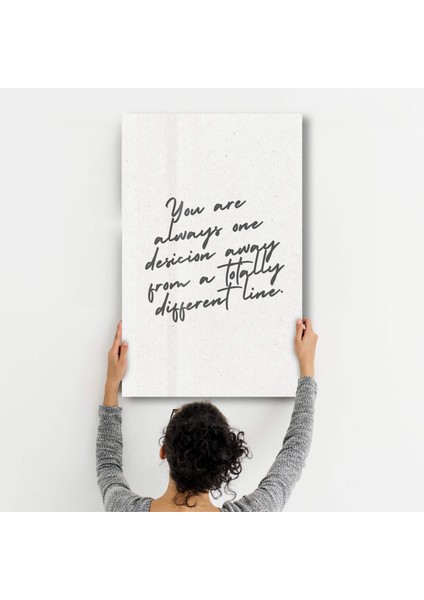 You are
always one
desicion away
from a totally
different line.